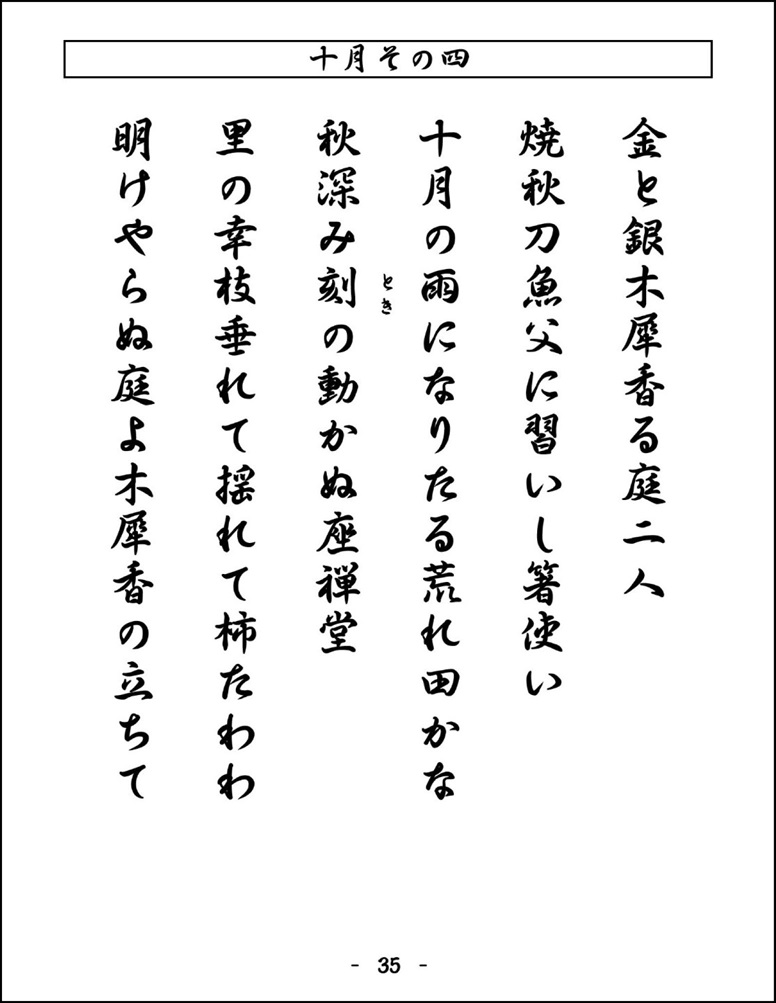 十月その四
金と銀木犀香る庭二人
焼秋刀魚父に習いし箸使い
十月の雨になりたる荒れ田かな
とき
秋深み刻の動かぬ座禅堂
里の幸枝垂れて揺れて柿たわわ
明けやらぬ庭よ木犀香の立ちて
- 35 -